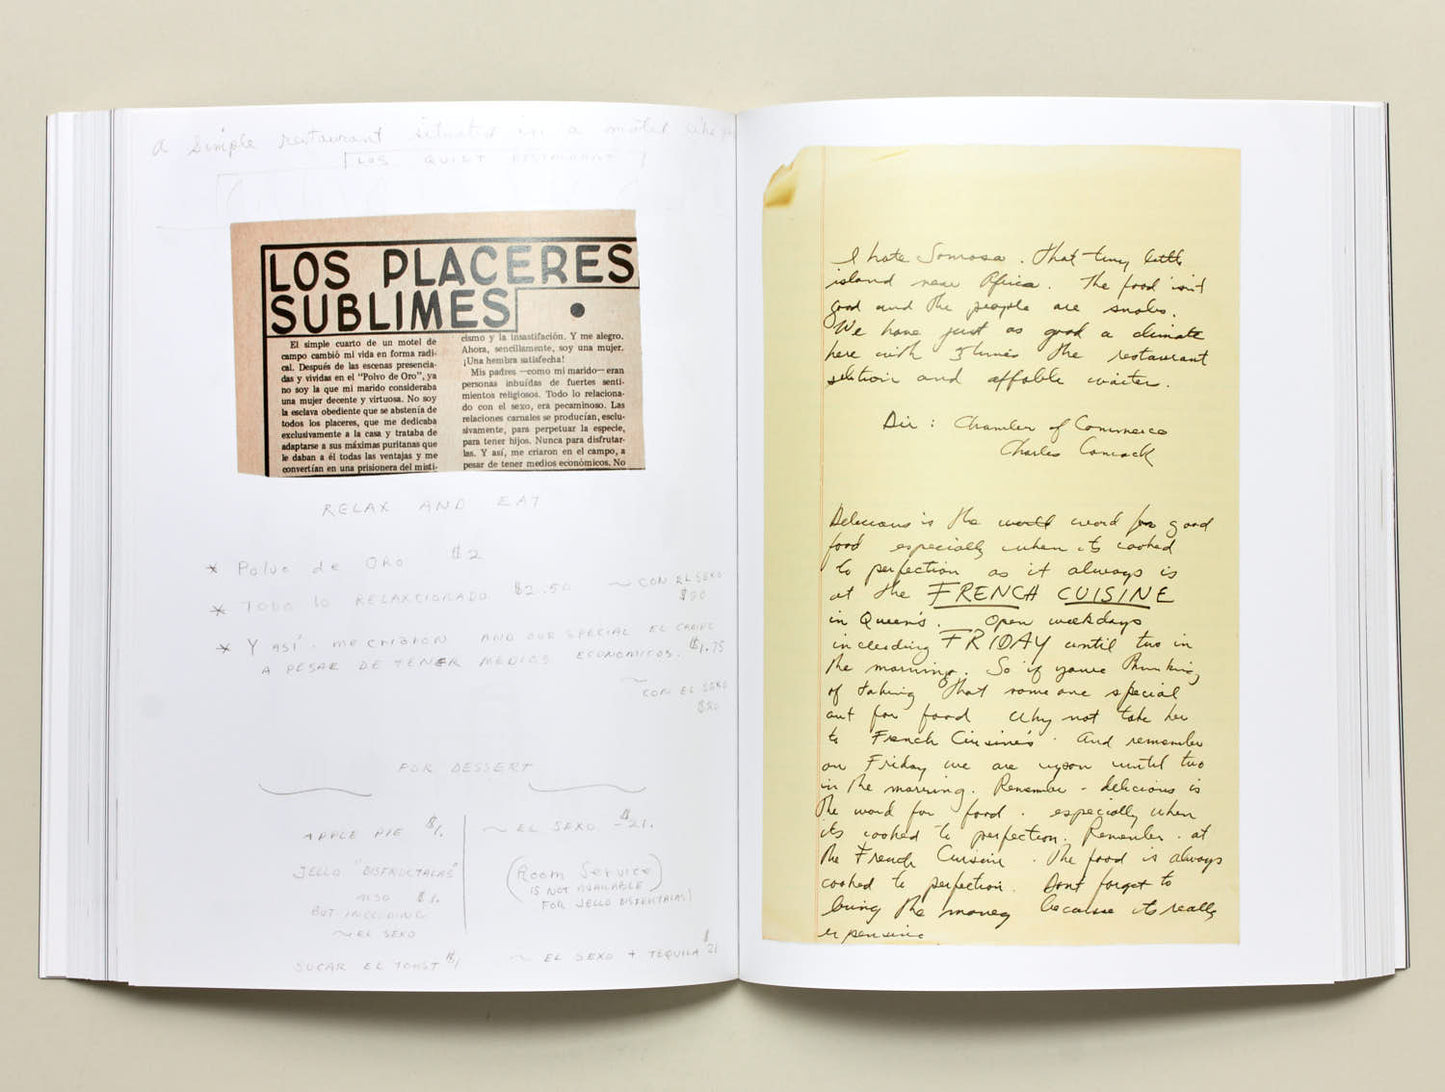 a simple restaurant situated in a motel
LOS QUIET RESTAURANT
LOS PLACERES
SUBLIMES
El simple cuarto de un motel de
campo cambió mi vida en forma radi-
cal. Después de las escenas presencia-
das y vividas en el "Polvo de Oro", ya
no soy la que mi marido consideraba
una mujer decente y virtuosa. No soy
la esclava obediente que se abstenía de
todos los placeres, que me dedicaba
exclusivamente a la casa y trataba de
adaptarse a sus máximas puritanas que
le daban a él todas las ventajas y me
convertían en una prisionera del misti-
cismo y la insastifación. Y me alegro.
Ahora, sencillamente, soy una mujer.
¡Una hembra satisfecha!
Mis padres —como mi marido— eran
personas inbuídas de fuertes senti-
mientos religiosos. Todo lo relaciona-
do con el sexo, era pecaminoso. Las
relaciones carnales se producían, esclu-
sivamente, para perpetuar la especie,
para tener hijos. Nunca para disfrutar-
las. Y así, me criaron en el campo, a
pesar de tener medios económicos. No
RELAX AND EAT
* Polvo de ORO $2
* TODO lo RELAXCIONADO $2.50 ~ CON EL SEXO
$20
* Y ASÍ. me criaron AND OUR SPECIAL EL
A PESAR DE TENER MEDIOS ECONOMICOS. $1.75
~ CON EL SEXO
$20
FOR DESSERT
APPLE PIE $1.
JELLO "DISFRUCTALAS"
ALSO $1.
BUT INCLUDING
~ EL SEXO
SUCAR EL TOAST $1
~ EL SEXO $21.
(Room Service
IS NOT AVAILABLE
FOR JELLO DISFRUTALAS)
~ EL SEXO + TEQUILA $21
I hate Somosa. That tiny little
island near Africa. The food isn't
good and the people are snobs.
We have just as good a climate
here with 3 times the restaurant
selection and affable waiters.
Dir: Chamber of Commerce
Charles
Delicious is the world word for good
food especially when its cooked
to perfection as it always is
at the FRENCH CUISINE
in Queens. Open weekdays
including FRIDAY until two in
the morning. So if youre thinking
of taking that someone special
out for food why not take her
to French Cuisine's. And remember
on Friday we are open until two
in the morning. Remember - delicious is
the word for food. especially when
its cooked to perfection. Remember. at
the French Cuisine. The food is always
cooked to perfection. Dont forget to
bring the money because its really
expensive